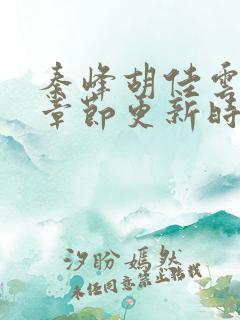 秦峰胡佳雲
章節更新時
汐盼嫣然
未经同意禁止转载